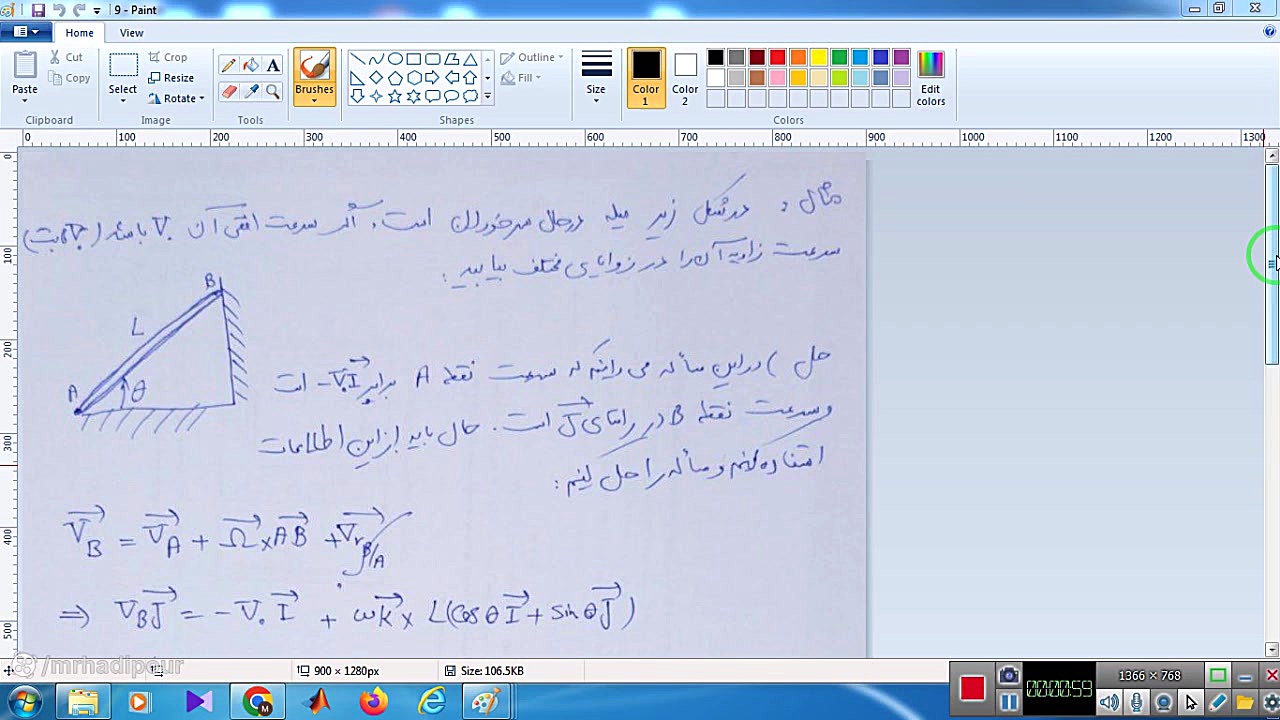 9 - Paint
Home View
Cut
Copy
Paste
Clipboard
Crop
Resize
Rotate
Select
Image
Tools
Brushes
Shapes
Outline
Fill
Size
Color 1
Color 2
Edit colors
Colors
0 100 200 300 400 500 600 700 800 900 1000 1100 1200 1300
0
100
200
300
400
500
مثال : در شکل زیر میله در حال سر خوردن است. اگر سرعت افقی آن V₀ باشد (V₀ ثابت)
سرعت زاویه آن را در زوایای مختلف بیابید :
B
L
A θ
حل ) در این مسأله می دانیم که سرعت نقطه A برابر -V₀I⃗ است
و سرعت نقطه B در راستای J⃗ است. حال باید از این اطلاعات
استفاده کنیم و مسأله را حل کنیم :
V⃗_B = V⃗_A + Ω⃗ × AB⃗ + V⃗r_B/A
⇒ V_B J⃗ = -V₀ I⃗ + ωk⃗ × L(cosθ I⃗ + sinθ J⃗)
/mrhadipour
900 × 1280px
Size: 106.5KB
00:00:59
1366 × 768